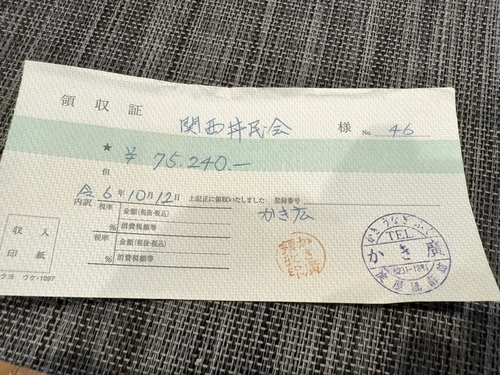 領収証
関西井民会 様 No. 46
★ ¥75,240.—
但
令6年10月12日 上記正に領収いたしました 登録番号
内訳
税率 % 金額(税抜・税込)
消費税額等
税率 % 金額(税抜・税込)
消費税額等
かき広
収入
印紙
クヨ ウケ-1097
かきうなぎふぐ
TEL
かき廣